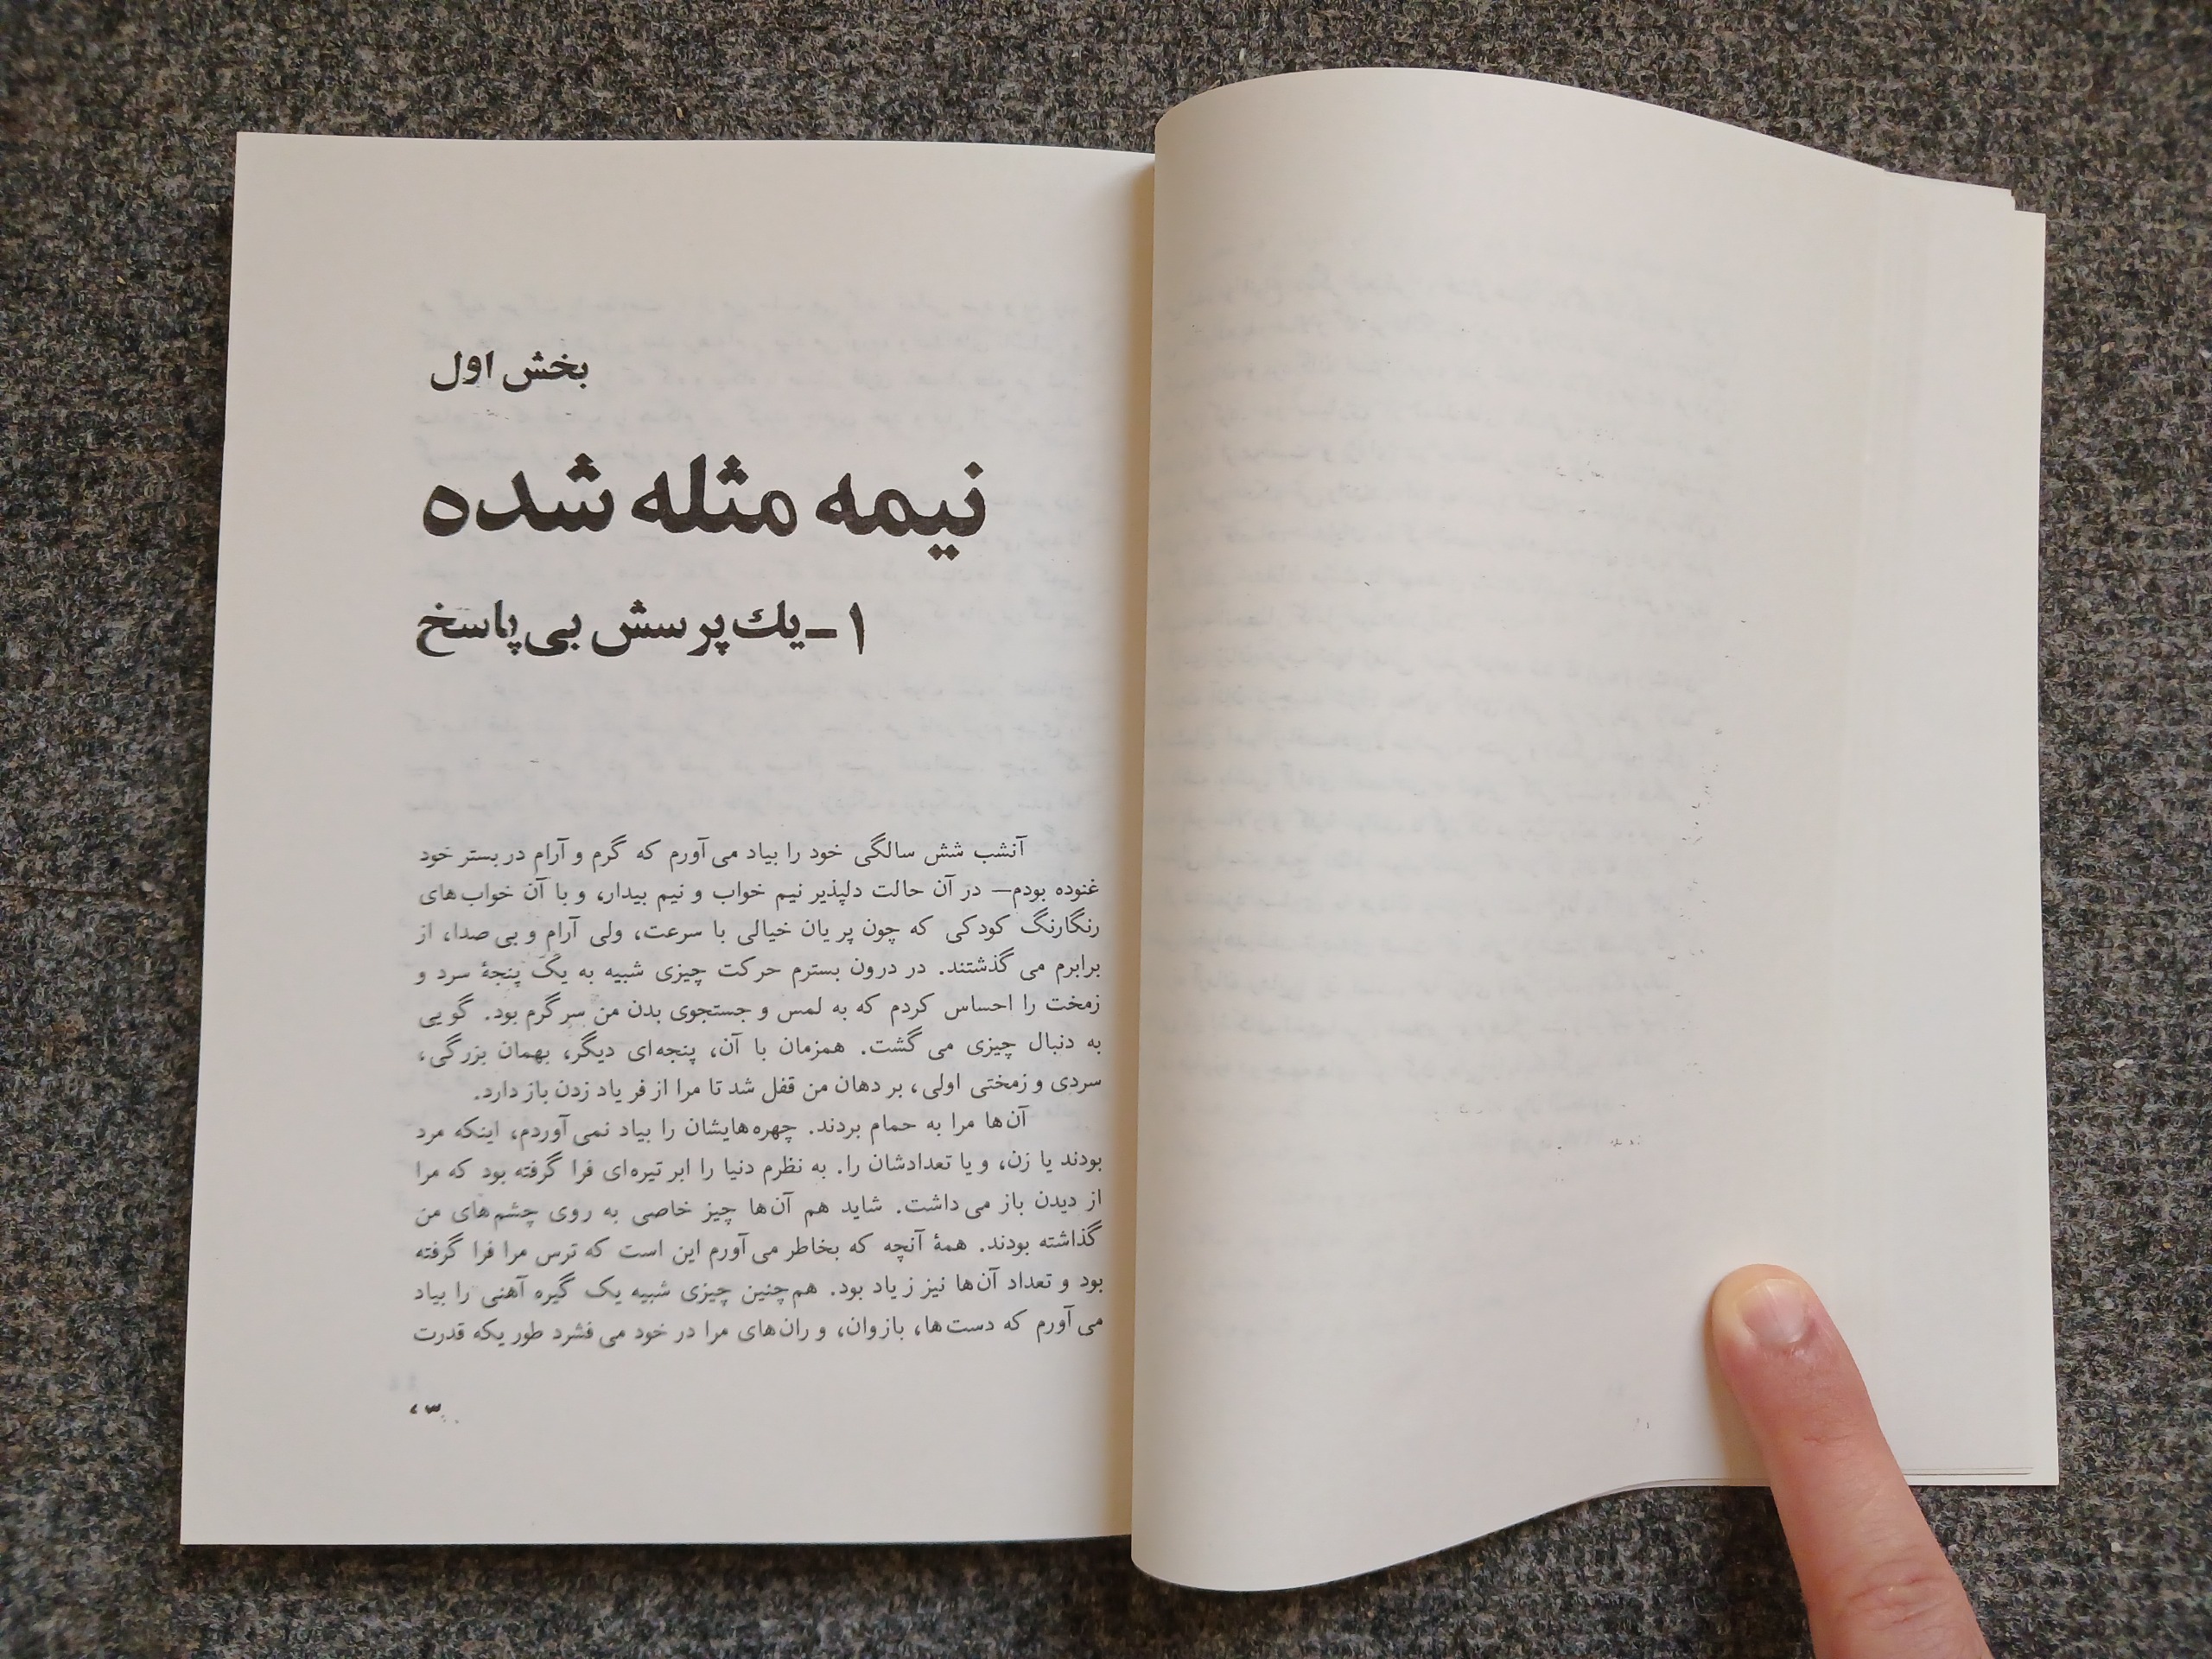 بخش اول
نیمه مثله شده
۱ـ یك پرسش بی‌پاسخ
آنشب شش سالگی خود را بیاد می‌آورم که گرم و آرام در بستر خود
غنوده بودم— در آن حالت دلپذیر نیم خواب و نیم بیدار، و با آن خواب‌های
رنگارنگ کودکی که چون پریان خیالی با سرعت، ولی آرام و بی‌صدا، از
برابرم می‌گذشتند. در درون بسترم حرکت چیزی شبیه به یک پنجهٔ سرد و
زمخت را احساس کردم که به لمس و جستجوی بدن من سرگرم بود. گویی
به دنبال چیزی می‌گشت. همزمان با آن، پنجه‌ای دیگر، بهمان بزرگی،
سردی و زمختی اولی، بر دهان من قفل شد تا مرا از فریاد زدن باز دارد.
آن‌ها مرا به حمام بردند. چهره‌هایشان را بیاد نمی‌آوردم، اینکه مرد
بودند یا زن، و یا تعدادشان را. به نظرم دنیا را ابر تیره‌ای فرا گرفته بود که مرا
از دیدن باز می‌داشت. شاید هم آن‌ها چیز خاصی به روی چشم‌های من
گذاشته بودند. همهٔ آنچه که بخاطر می‌آورم این است که ترس مرا فرا گرفته
بود و تعداد آن‌ها نیز زیاد بود. هم‌چنین چیزی شبیه یک گیره آهنی را بیاد
می‌آورم که دست‌ها، بازوان، و ران‌های مرا در خود می‌فشرد طوریکه قدرت